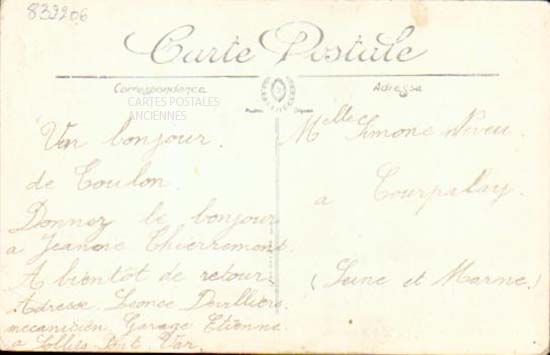 839206
Carte Postale
Correspondance
Adresse
CARTES POSTALES
ANCIENNES
Un bonjour
de Toulon.
Donnez le bonjour
a Jeanne Thierremont.
A bientôt de retour.
Adresse. Leonce Devilliers.
mecanicien. Garage Etienne
a Sollies Pont. Var.
Melle Simone Neveu
a Courpalay.
(Seine et Marne.)